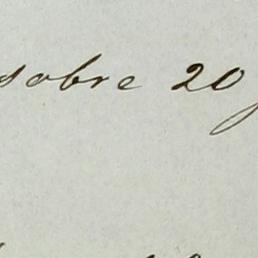 sobre 20